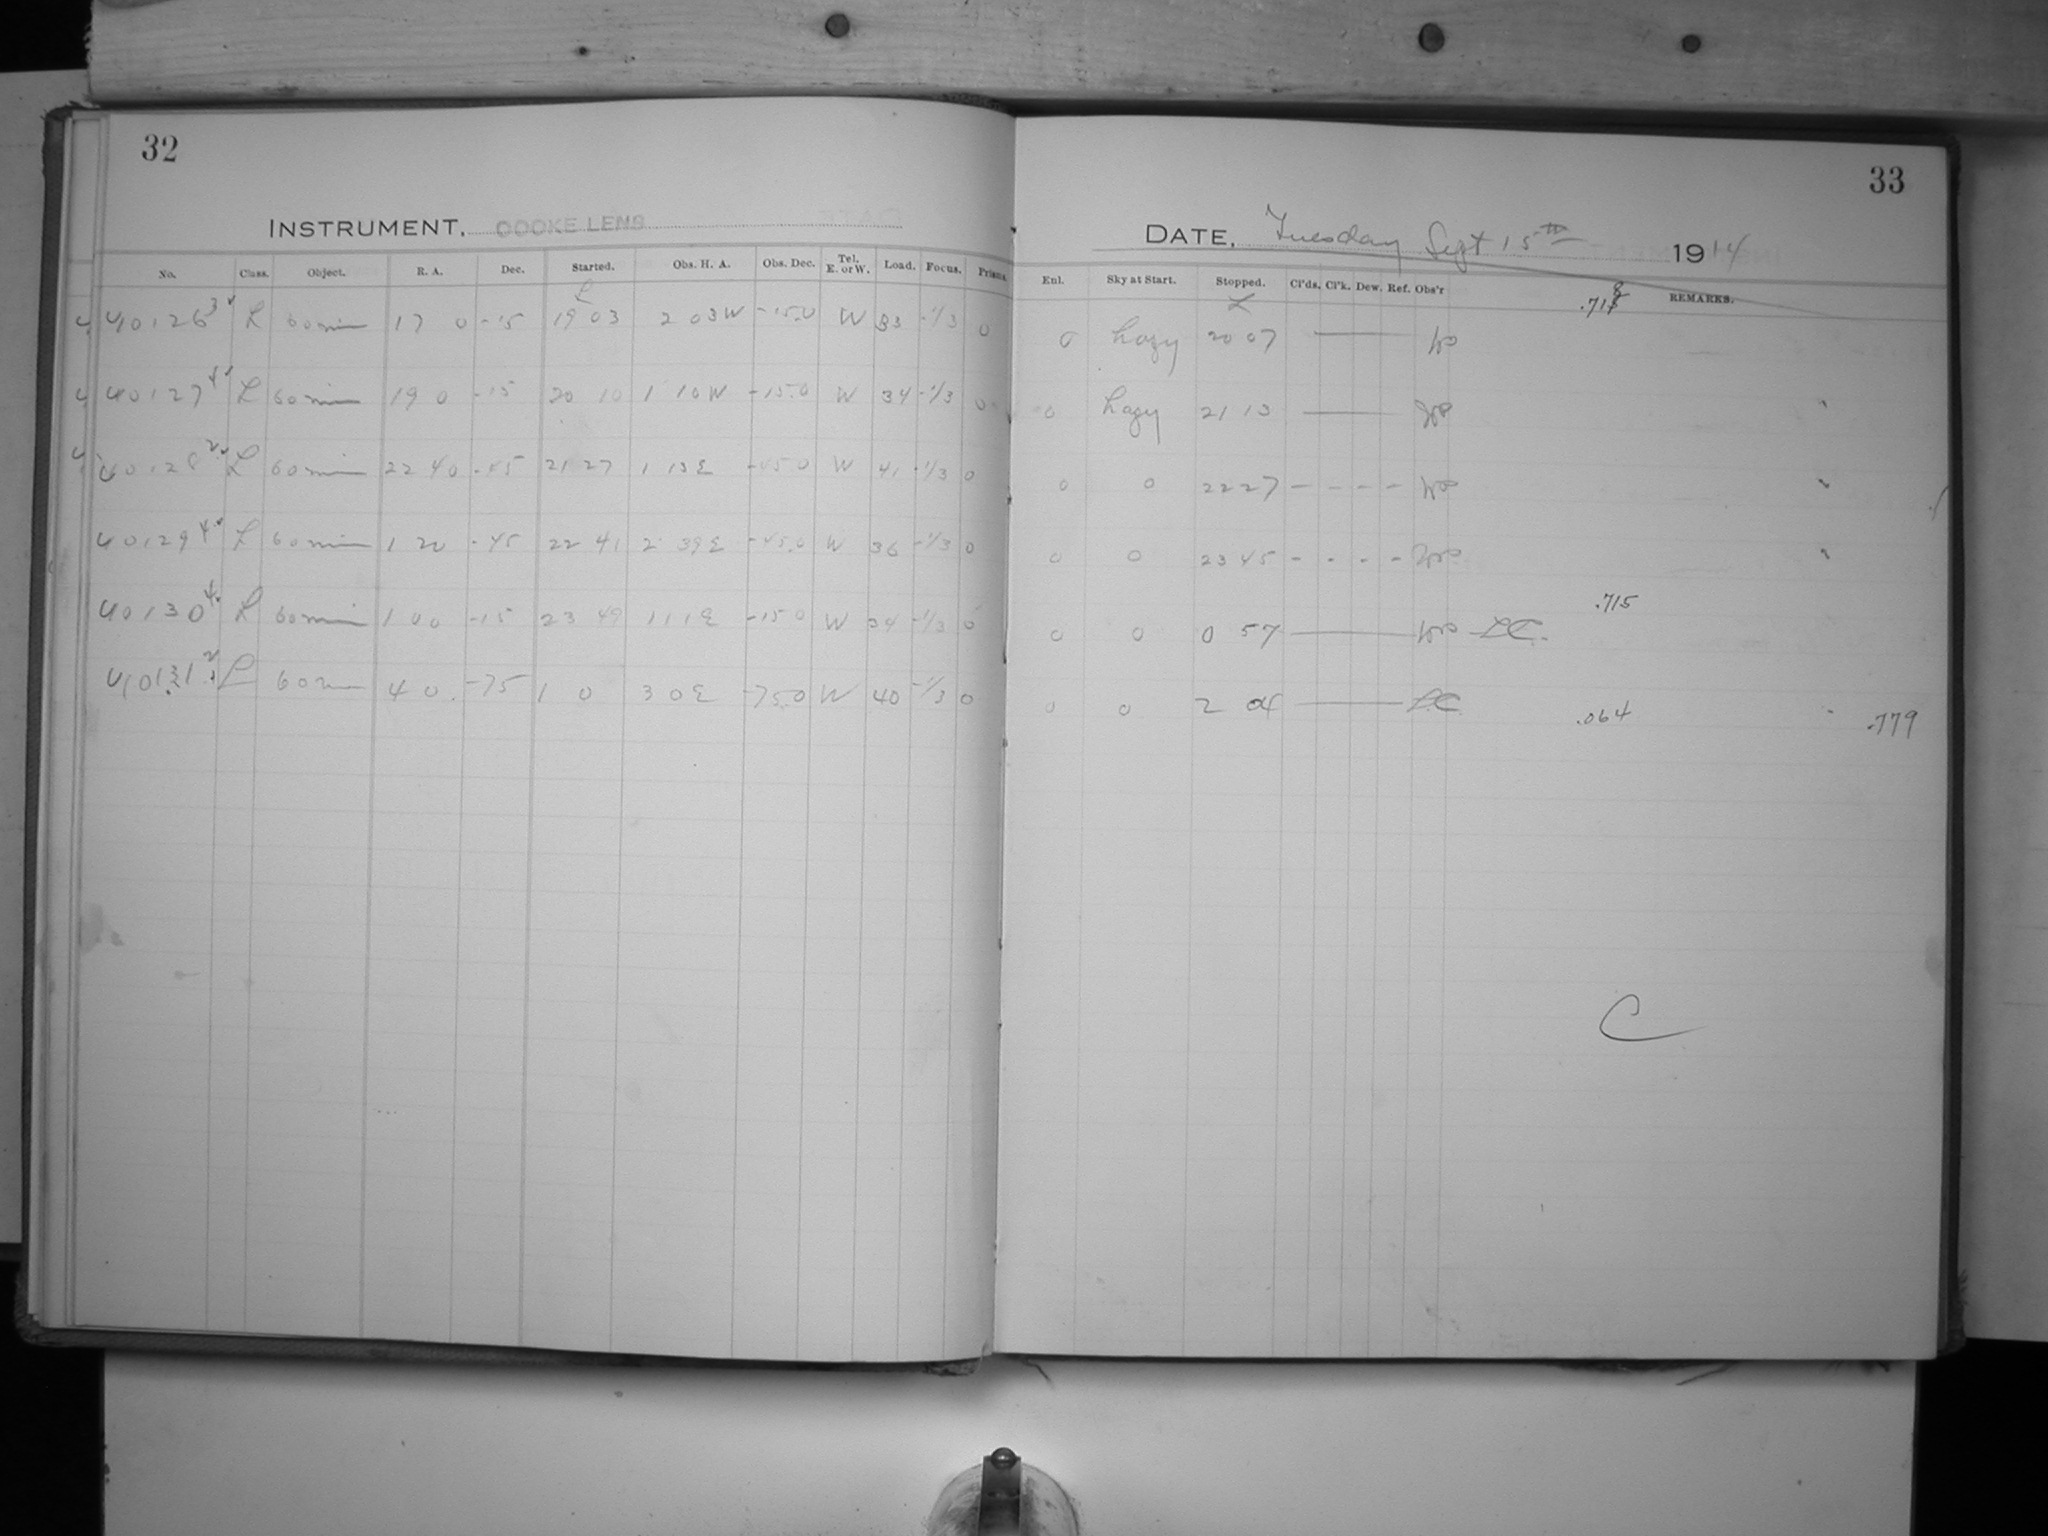 32
INSTRUMENT. COOKE LENS
No. Class. Object. R. A. Dec. Started. Obs. H. A. Obs. Dec. Tel. E. or W. Load. Focus. Prisms.
40126 3 L 60 min 17 0 -15 19 03 2 03W -15.0 W 33 -1/3 0
40127 4 L 60 min 19 0 -15 20 10 1 10W -15.0 W 34 -1/3 0
40128 2 L 60 min 22 40 -45 21 27 1 13E -45.0 W 41 -1/3 0
40129 4 L 60 min 1 20 -45 22 41 2 39E -45.0 W 36 -1/3 0
40130 4 L 60 min 1 00 -15 23 49 1 11E -15.0 W 34 -1/3 0
40131 2 L 60 m 4 0 -75 1 0 3 0E -75.0 W 40 -1/3 0
33
DATE, Tuesday Sept 15th 1914
Enl. Sky at Start. Stopped. Cl'ds. Cl'k. Dew. Ref. Obs'r REMARKS.
.718
0 hazy 20 07
0 hazy 21 13
0 0 22 27 - - - -
0 0 23 45 - - - -
.715
0 0 0 57 LC.
0 0 2 04 LC .064 .779
C